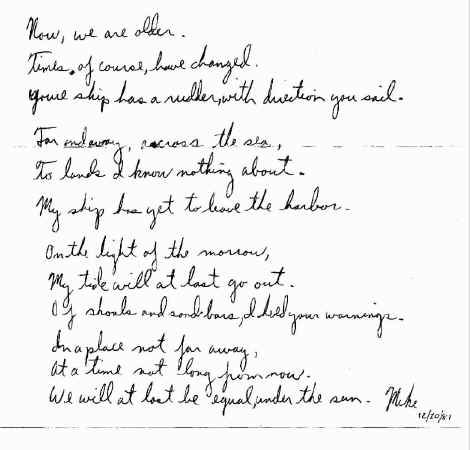 Now, we are older.
Times, of course, have changed.
Youre ship has a rudder, with direction you sail.
Far and away, across the sea,
To lands I know nothing about.
My ship has yet to leave the harbor.
On the light of the morrow,
My tide will at last go out.
Of shoals and sand-bars, I heed your warnings.
In a place not far away,
At a time not long from now.
We will at last be equal, under the sun. Mike
12/20/81